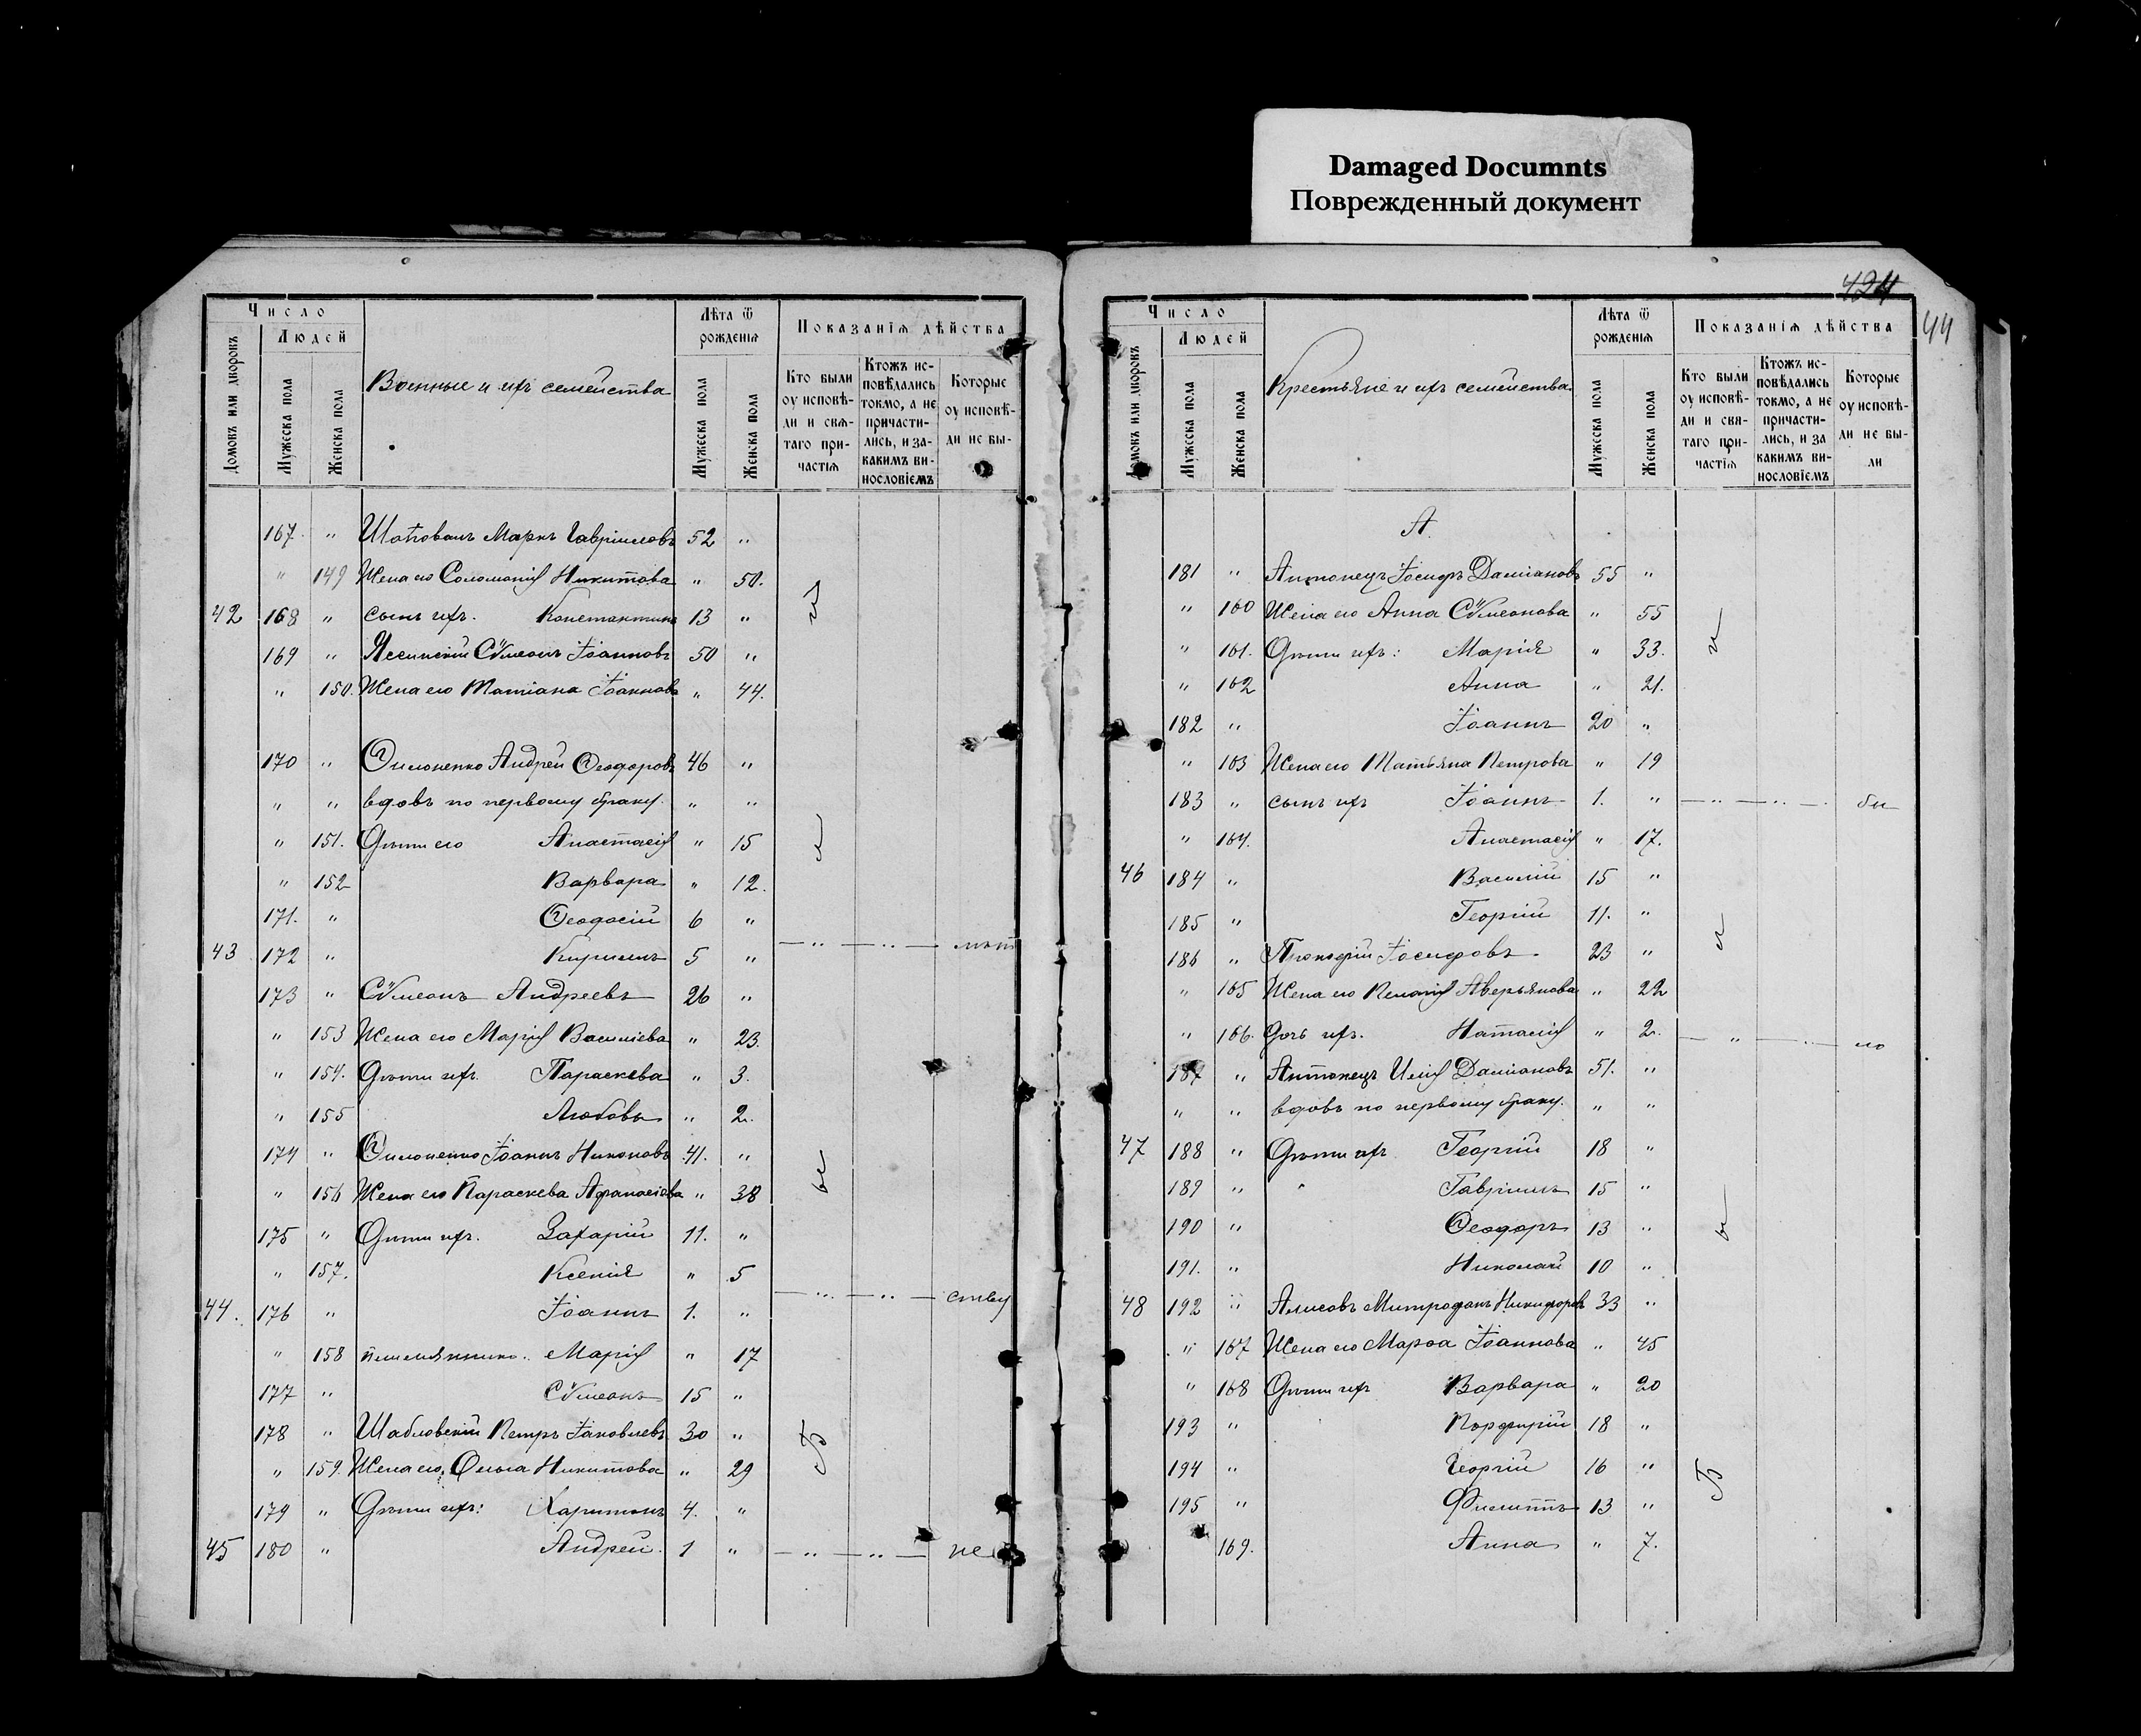 Damaged Documnts
Поврежденный документ
Число
Людей
Домовъ или дворовъ
Мужеска пола
Женска пола
Военные и ихъ семейства
Лѣта ѿ рожденія
Мужеска пола
Женска пола
Показанія дѣйства
Кто были оу исповѣ-
ди и свя-
таго при-
частія
Ктожъ ис-
повѣдались
токмо, а не
причасти-
лись, и за-
какимъ ви-
нословіемъ
Которые
оу исповѣ-
ди не бы-
167 " Маркъ Гавріиловъ 52 "
" 149 Жена его Соломонія Никитова " 50.
42 168 " сынъ ихъ. Константинъ 13 "
169 " Сѵмеонъ Іоанновъ 50 "
" 150. Жена его Татіана Іоаннова " 44.
170 " Андрей Ѳеодоровъ 46 "
" " вдовъ по первому браку. " "
" 151. Дѣти его Анастасія " 15
" 152 Варвара " 12.
171. " Ѳеодосій 6 "
43 172 " Кириллъ 5 " — " — " —
173 " Сѵмеонъ Андреевъ 26 "
" 153 Жена его Марія Василіева " 23.
" 154. Дѣти ихъ. Параскева " 3.
" 155 Любовь " 2.
174 " Іоаннъ Никоновъ 41. "
" 156 Жена его Параскева Афанасіева " 38
175 " Дѣти ихъ. Захарій 11. "
" 157. Ксенія " 5
44. 176 " Іоаннъ 1. " — " — " —
" 158 Марія " 17
177 " Сѵмеонъ 15 "
178 " Шабловскій Петръ Іаковлевъ 30 "
" 159. Жена его, Ольга Никитова " 29
179 " Дѣти ихъ: Харитонъ 4. "
45 180 " Андрей. 1 " — " — " — не
424
44
Число
Людей
Домовъ или дворовъ
Мужеска пола
Женска пола
Крестьяне и ихъ семейства.
Лѣта ѿ рожденія
Мужеска пола
Женска пола
Показанія дѣйства
Кто были
оу исповѣ-
ди и свя-
таго при-
частія
Ктожъ ис-
повѣдались
токмо, а не
причасти-
лись, и за
какимъ ви-
нословіемъ
Которые
оу исповѣ-
ди не бы-
ли
А.
181 " Антонецъ Іосифъ Даміановъ 55 "
" 160 Жена его Анна Сѵмеонова " 55
" 161. Дѣти ихъ: Марія " 33.
" 162 Анна " 21.
182 " Іоаннъ 20 "
" 163 Жена его Татьяна Петрова " 19
183 " сынъ ихъ Іоаннъ 1. " — " — " — бы
" 164. Анастасія " 17.
46 184 " Василій 15 "
185 " Георгій 11. "
186 " Прокофій Іосифовъ. 23 "
" 165 Жена его Пелагія Аверьянова " 22
" 166. Дочь ихъ. Наталія " 2. — " — " — ло
187 " Антонецъ Илія Даміановъ 51. "
" " вдовъ по первому браку. " "
47 188 " Дѣти ихъ Георгій 18 "
189 " Гавріилъ 15 "
190 " Ѳеодоръ 13 "
191. " Николай 10 "
48 192 " Алисовъ Митрофанъ Никифоровъ 33 "
" 167 Жена его Марѳа Іоаннова " 45
" 168 Дѣти ихъ Варвара " 20
193 " Порфирій 18 "
194 " Георгій 16 "
195 " Филиппъ 13 "
169. Анна " 7.